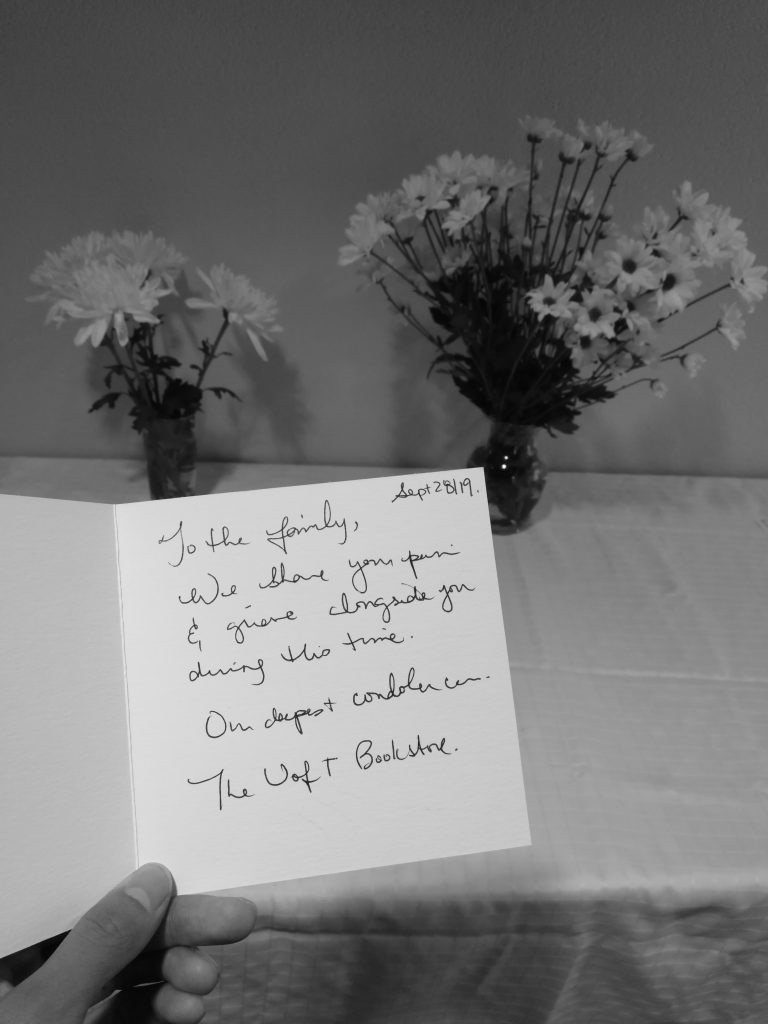 Sept 28/19.
To the family,
We share your pain
& grieve alongside you
during this time.
Our deepest condolences.
The UofT Bookstore.